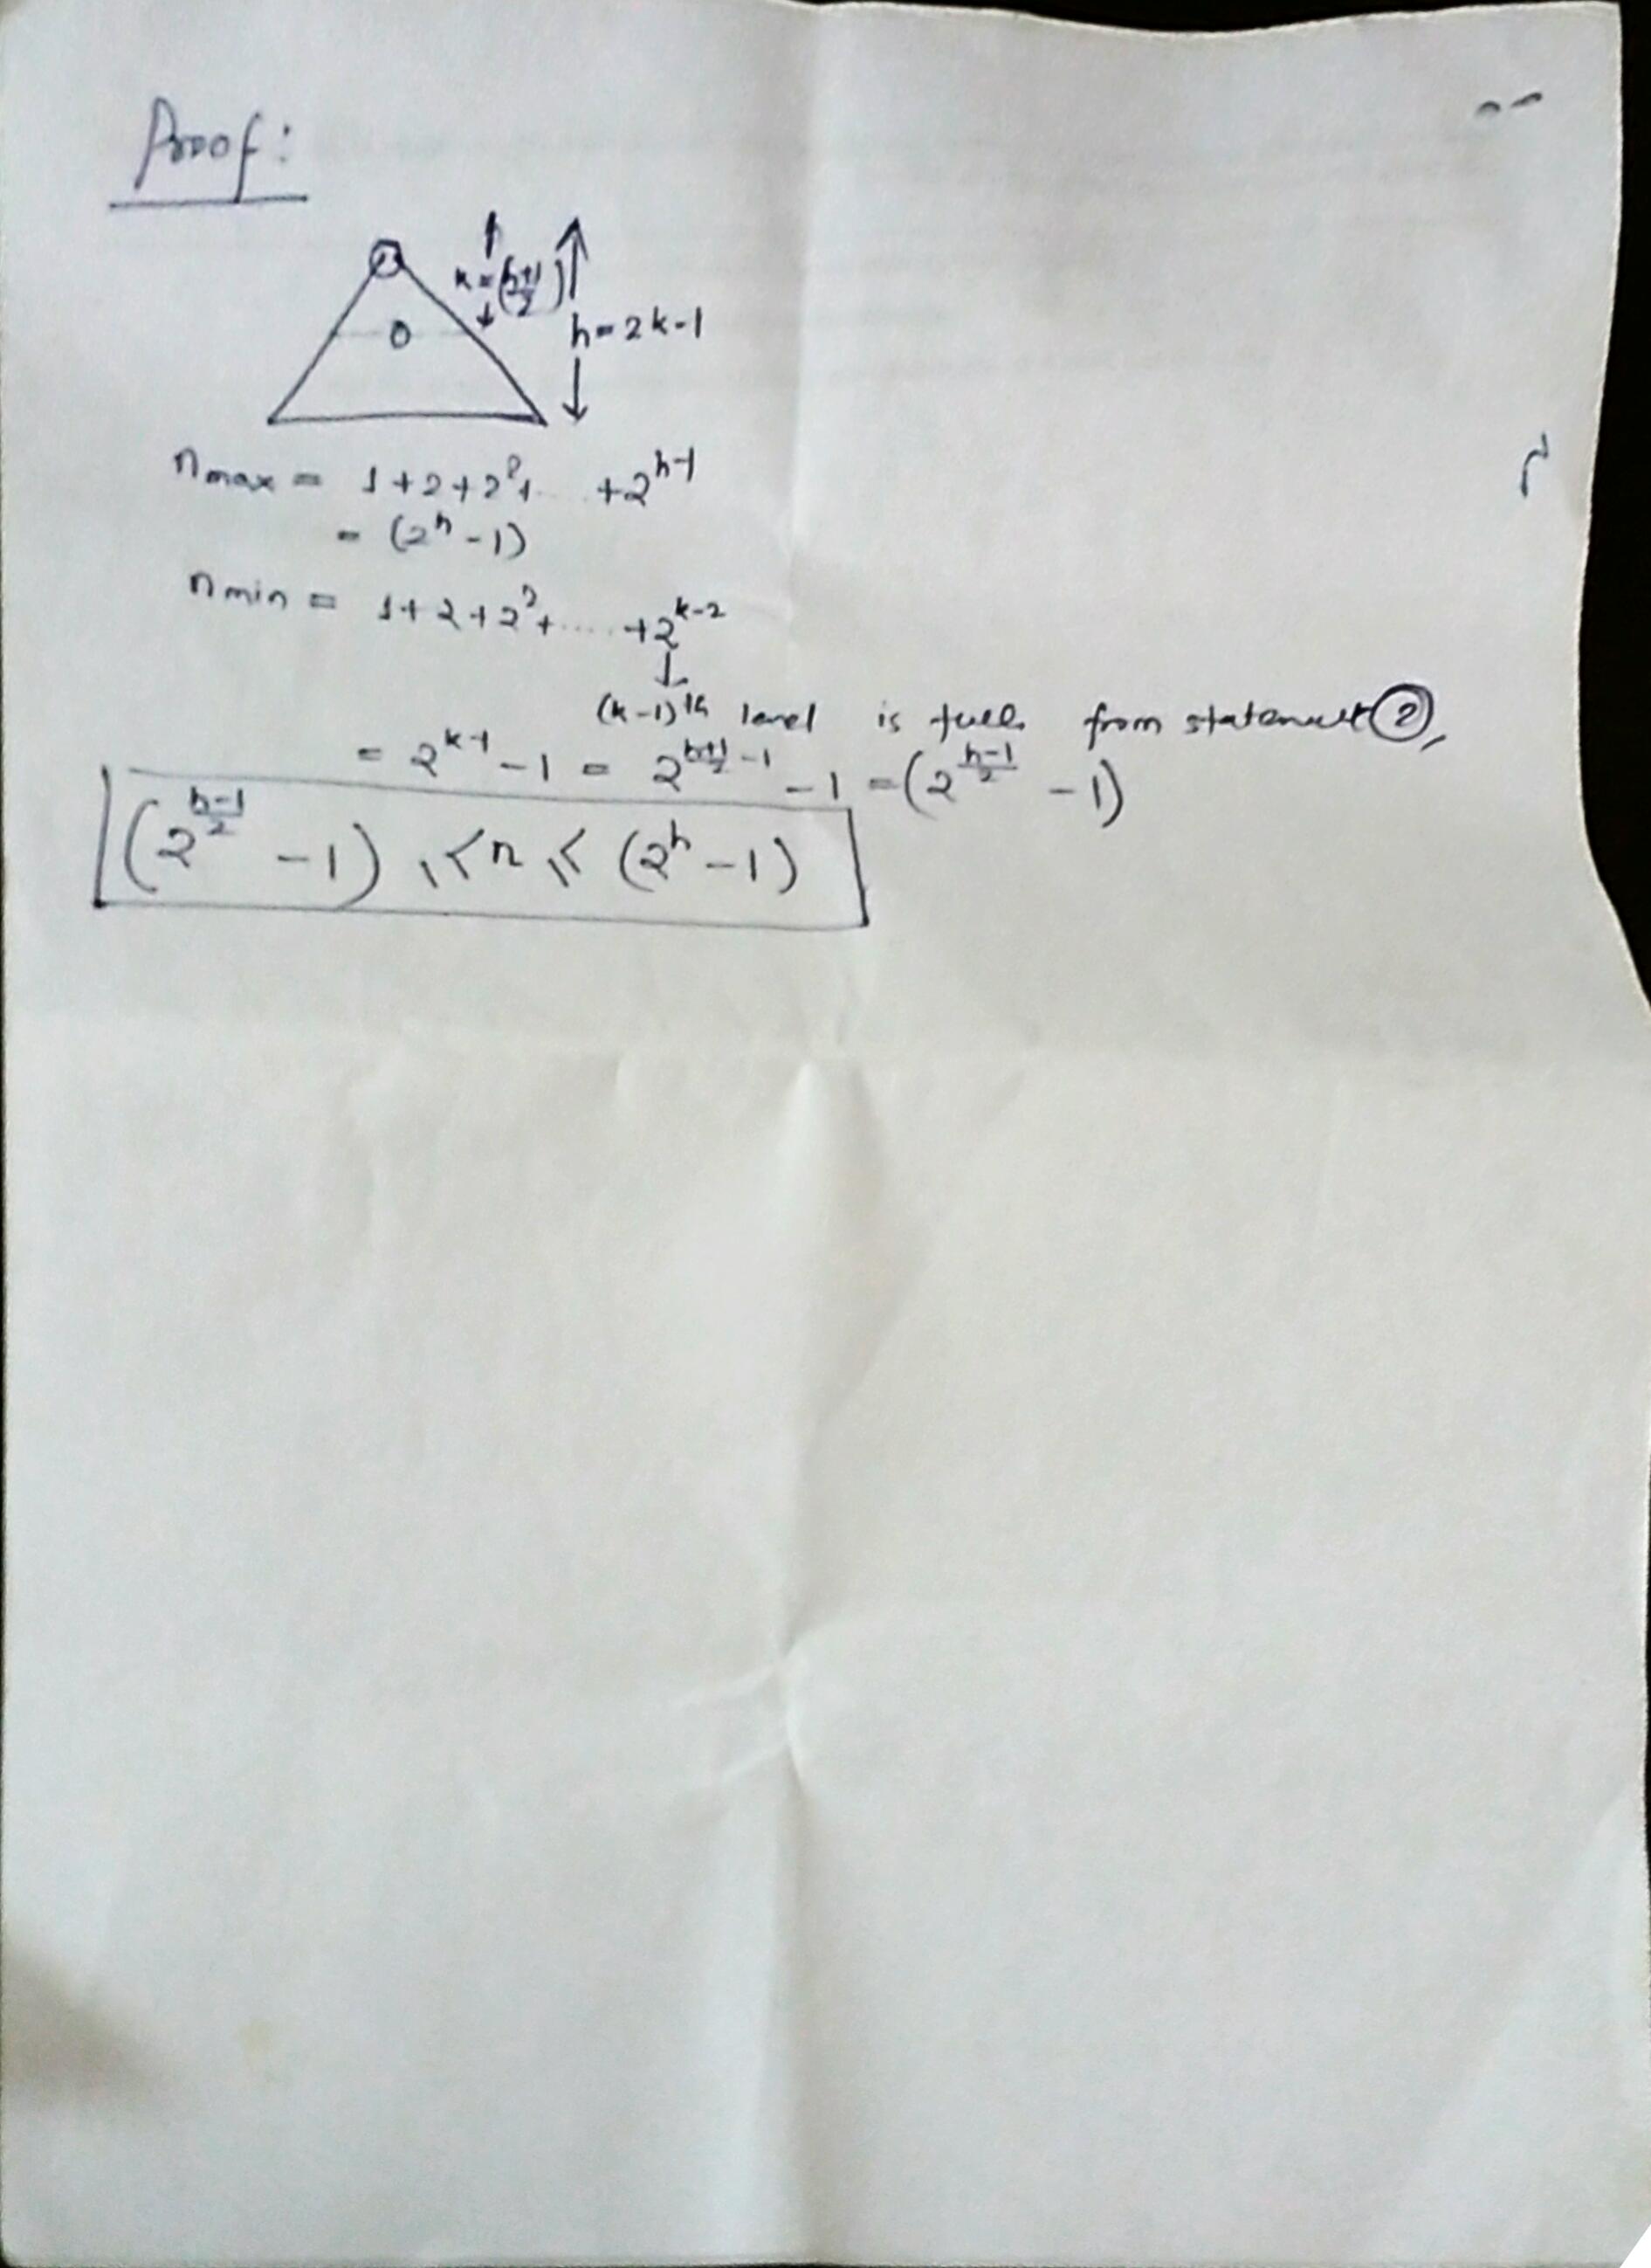 Proof:
k = (h+1/2)
h = 2k-1
0
n max = 1+2+2²+ ... +2^(h-1)
= (2^h - 1)
n min = 1+2+2²+ ..... +2^(k-2)
↓
(k-1)th level is full from statement ②,
= 2^(k-1) - 1 = 2^(h+1/2 - 1) - 1 = (2^(h-1/2) - 1)
(2^(h-1/2) - 1) ≤ n ≤ (2^h - 1)